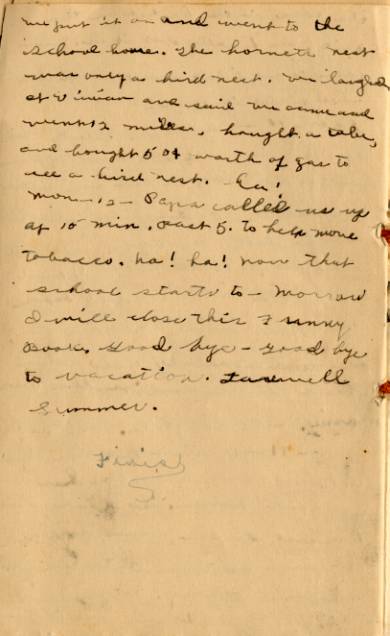 we put it on and went to the
school house. The hornets nest
was only a bird nest. We laughed
at Vivian and said we came and
went 12 miles, bought a tube,
and bought 50¢ worth of gas to
see a bird nest. Ha!
Mon - 12 - Papa called us up
at 15 min. past 5. to help move
tobacco. ha! ha! now that
school starts to-morrow
I will close this Funny
Book. Good bye - Good bye
to vacation. Farewell
Summer.
Finis